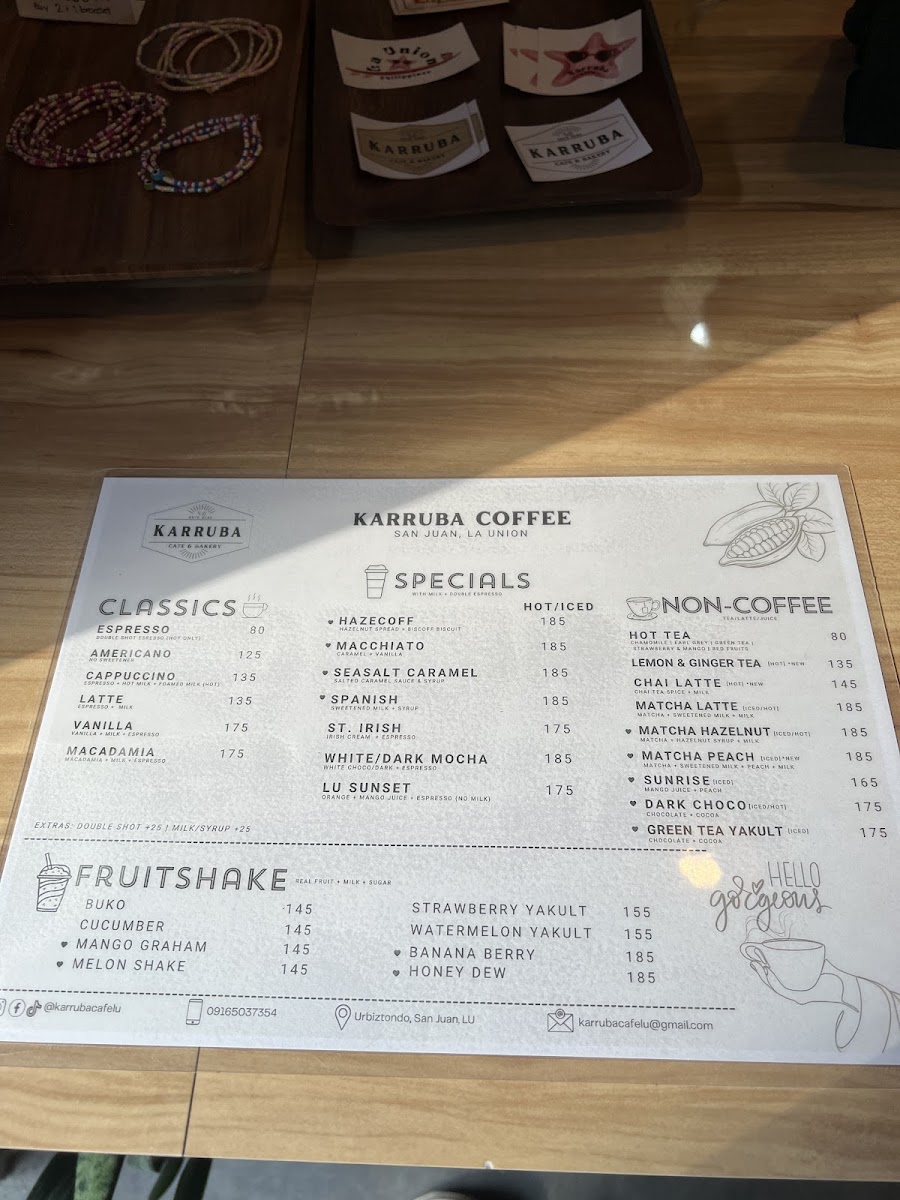 Buy 2+1 bracelet
La Union
Philippines
KARRUBA
CAFE & BAKERY
KARRUBA
CAFE & BAKERY
KARRUBA
CAFE & BAKERY
KARRUBA COFFEE
SAN JUAN, LA UNION
CLASSICS
ESPRESSO 80
DOUBLE SHOT ESPRESSO (HOT ONLY)
AMERICANO 125
NO SWEETENER
CAPPUCCINO 135
ESPRESSO + HOT MILK + FOAMED MILK (HOT)
LATTE 135
ESPRESSO + MILK
VANILLA 175
VANILLA + MILK + ESPRESSO
MACADAMIA 175
MACADAMIA + MILK + ESPRESSO
EXTRAS: DOUBLE SHOT +25 | MILK/SYRUP +25
SPECIALS
WITH MILK + DOUBLE ESPRESSO
HOT/ICED
HAZECOFF 185
HAZELNUT SPREAD + BISCOFF BISCUIT
MACCHIATO 185
CARAMEL + VANILLA
SEASALT CARAMEL 185
SALTED CARAMEL SAUCE & SYRUP
SPANISH 185
SWEETENED MILK + SYRUP
ST. IRISH 175
IRISH CREAM + ESPRESSO
WHITE/DARK MOCHA 185
WHITE CHOCO/DARK + ESPRESSO
LU SUNSET 175
ORANGE + MANGO JUICE + ESPRESSO (NO MILK)
NON-COFFEE
TEA/LATTE/JUICE
HOT TEA 80
CHAMOMILE | EARL GREY | GREEN TEA |
STRAWBERRY & MANGO | RED FRUITS
LEMON & GINGER TEA (HOT) *NEW 135
CHAI LATTE (HOT) *NEW 145
CHAI TEA SPICE + MILK
MATCHA LATTE [ICED/HOT] 185
MATCHA + SWEETENED MILK + MILK
MATCHA HAZELNUT [ICED/HOT] 185
MATCHA + HAZELNUT SYRUP + MILK
MATCHA PEACH [ICED] *NEW 185
MATCHA + SWEETENED MILK + PEACH + MILK
SUNRISE [ICED] 165
MANGO JUICE + PEACH
DARK CHOCO [ICED/HOT] 175
CHOCOLATE + COCOA
GREEN TEA YAKULT [ICED] 175
CHOCOLATE + COCOA
FRUITSHAKE REAL FRUIT + MILK + SUGAR
BUKO 145
CUCUMBER 145
MANGO GRAHAM 145
MELON SHAKE 145
STRAWBERRY YAKULT 155
WATERMELON YAKULT 155
BANANA BERRY 185
HONEY DEW 185
HELLO
gorgeous
@karrubacafelu
09165037354
Urbiztondo, San Juan, LU
karrubacafelu@gmail.com